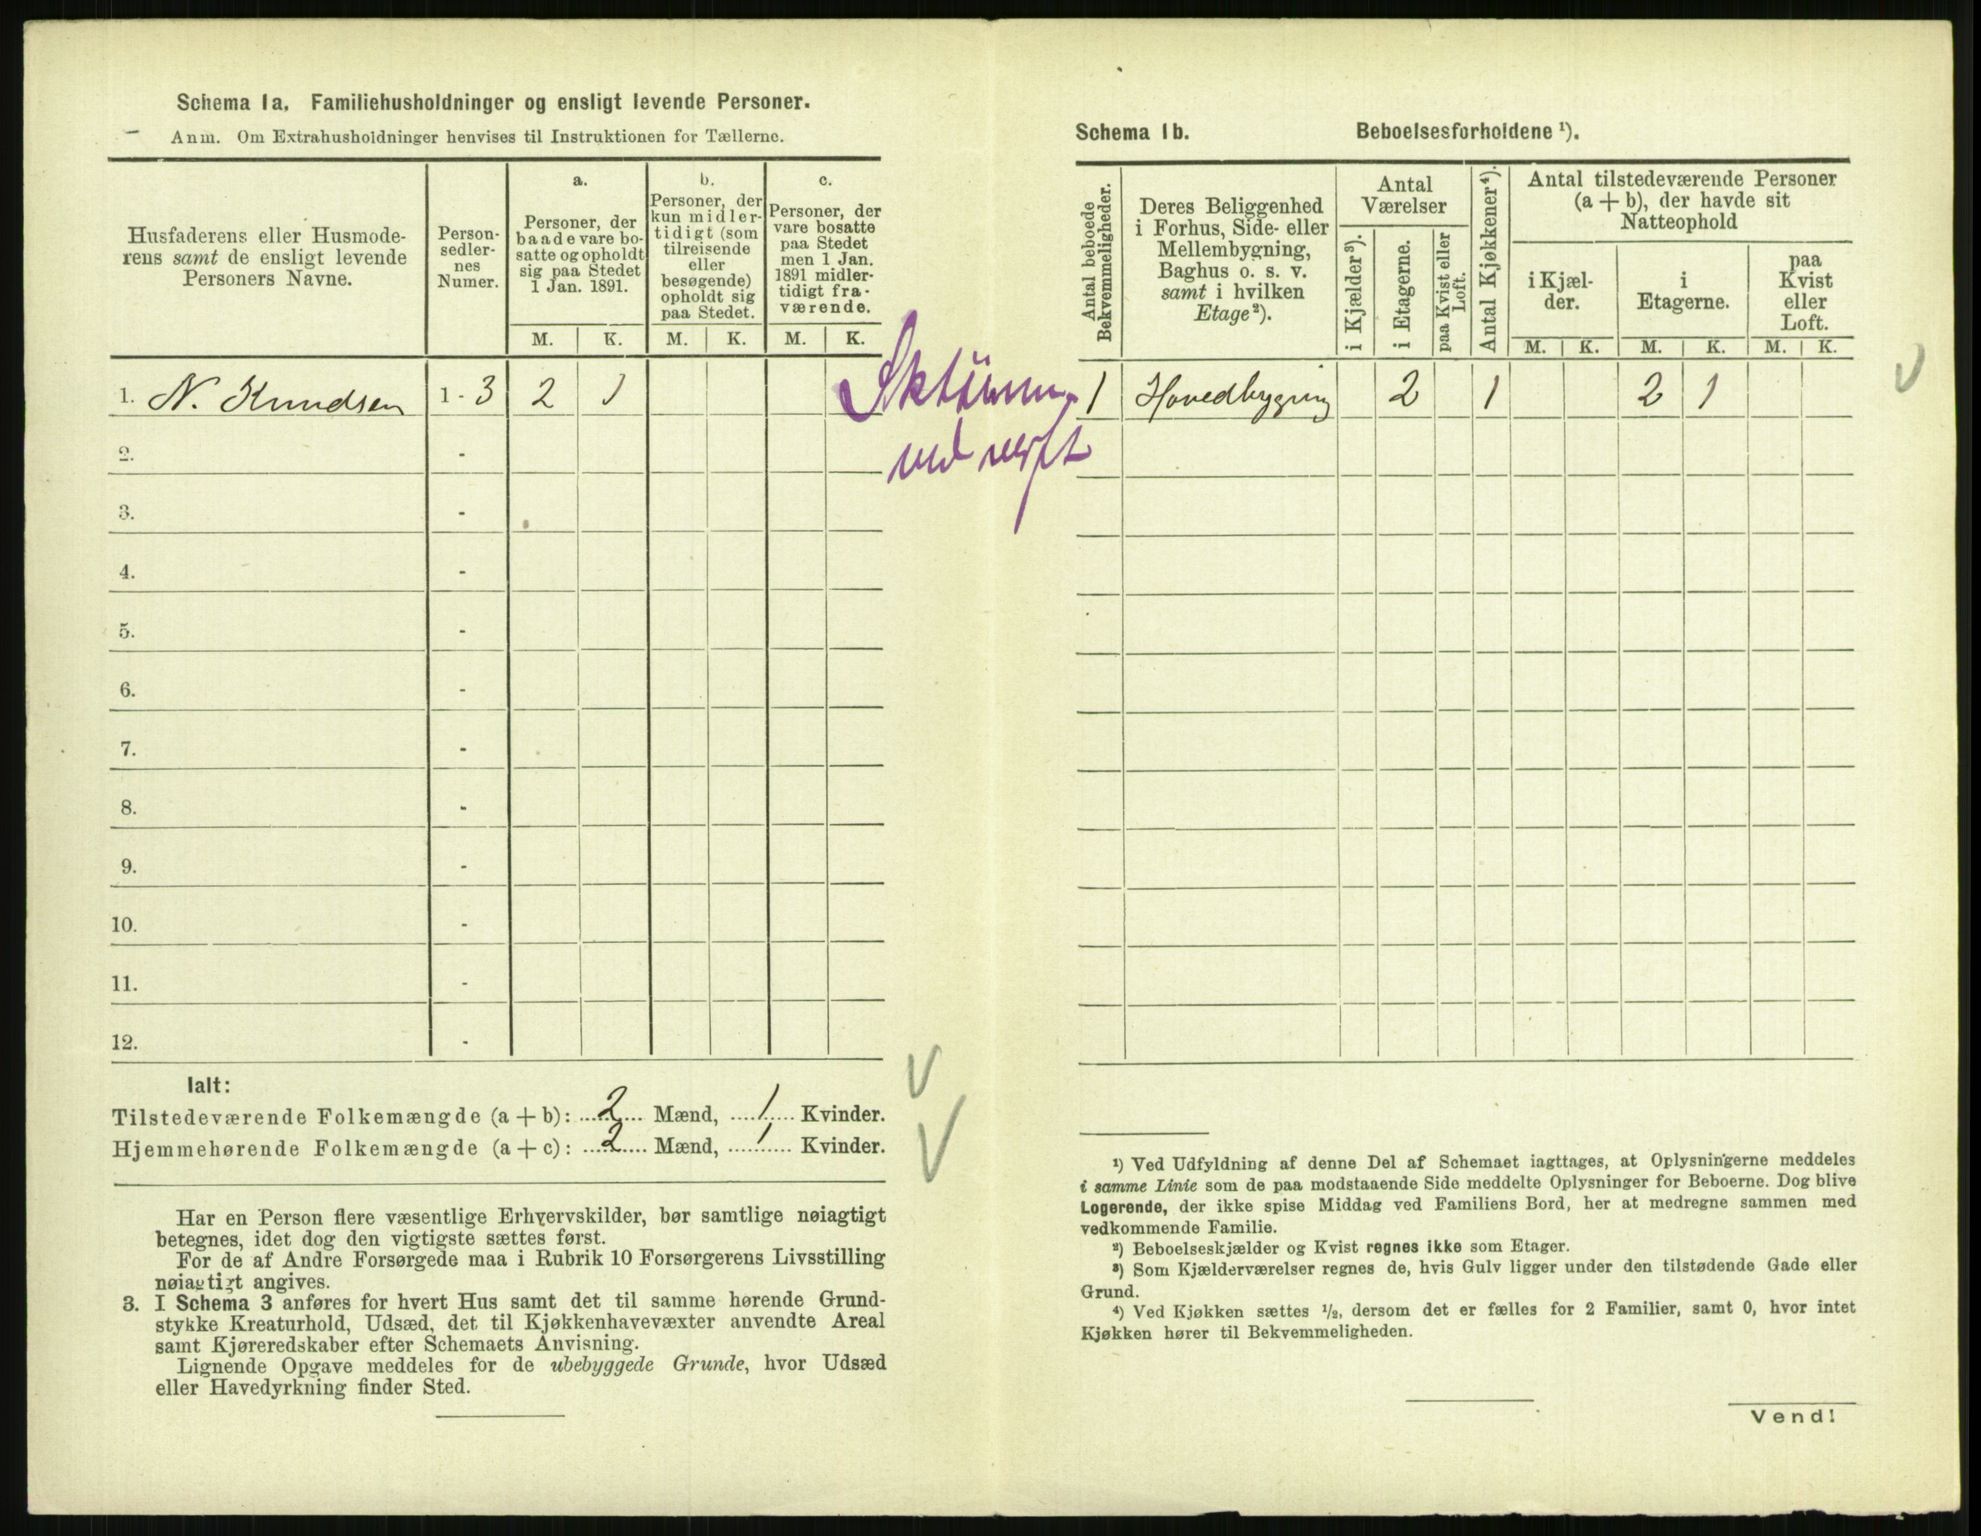 Schema 1a. Familiehusholdninger og ensligt levende Personer.
Anm. Om Extrahusholdninger henvises til Instruktionen for Tællerne.
Husfaderens eller Husmode-
rens samt de ensligt levende
Personers Navne.
Person-
sedler-
nes
Numer.
a.
Personer, der
baade vare bo-
satte og opholdt
sig paa Stedet
1 Jan. 1891.
b.
Personer, der
kun midler-
tidigt (som
tilreisende
eller
besøgende)
opholdt sig
paa Stedet.
c.
Personer, der
vare bosatte
paa Stedet
men 1 Jan.
1891 midler-
tidigt fra-
værende.
M. K. M. K. M. K.
1. N. Knudsen 1 - 3 2 1
2. -
3. -
4. -
5. -
6. -
7. -
8. -
9. -
10. -
11. -
12. -
ved
Ialt:
Tilstedeværende Folkemængde (a + b): 2 Mænd, 1 Kvinder.
Hjemmehørende Folkemængde (a + c): 2 Mænd, 1 Kvinder.
Har en Person flere væsentlige Erhvervskilder, bør samtlige nøiagtigt
betegnes, idet dog den vigtigste sættes først.
For de af Andre Forsørgede maa i Rubrik 10 Forsørgerens Livsstilling
nøiagtigt angives.
3. I Schema 3 anføres for hvert Hus samt det til samme hørende Grund-
stykke Kreaturhold, Udsæd, det til Kjøkkenhavevæxter anvendte Areal
samt Kjøreredskaber efter Schemaets Anvisning.
Lignende Opgave meddeles for de ubebyggede Grunde, hvor Udsæd
eller Havedyrkning finder Sted.
Schema 1b. Beboelsesforholdene ¹).
Antal beboede
Bekvemmeligheder.
Deres Beliggenhed
i Forhus, Side- eller
Mellembygning,
Baghus o. s. v.
samt i hvilken
Etage²).
Antal
Værelser
i Kjælder³).
i Etagerne.
paa Kvist eller
Loft.
Antal Kjøkkener⁴).
Antal tilstedeværende Personer
(a + b), der havde sit
Natteophold
i Kjæl-
der.
i
Etagerne.
paa
Kvist
eller
Loft.
M. K. M. K. M. K.
1 Hovedbygning 2 1 2 1
¹) Ved Udfyldning af denne Del af Schemaet iagttages, at Oplysningerne meddeles
i samme Linie som de paa modstaaende Side meddelte Oplysninger for Beboerne. Dog blive
Logerende, der ikke spise Middag ved Familiens Bord, her at medregne sammen med
vedkommende Familie.
²) Beboelseskjælder og Kvist regnes ikke som Etager.
³) Som Kjælderværelser regnes de, hvis Gulv ligger under den tilstødende Gade eller
Grund.
⁴) Ved Kjøkken sættes ½, dersom det er fælles for 2 Familier, samt 0, hvor intet
Kjøkken hører til Bekvemmeligheden.
Vend!